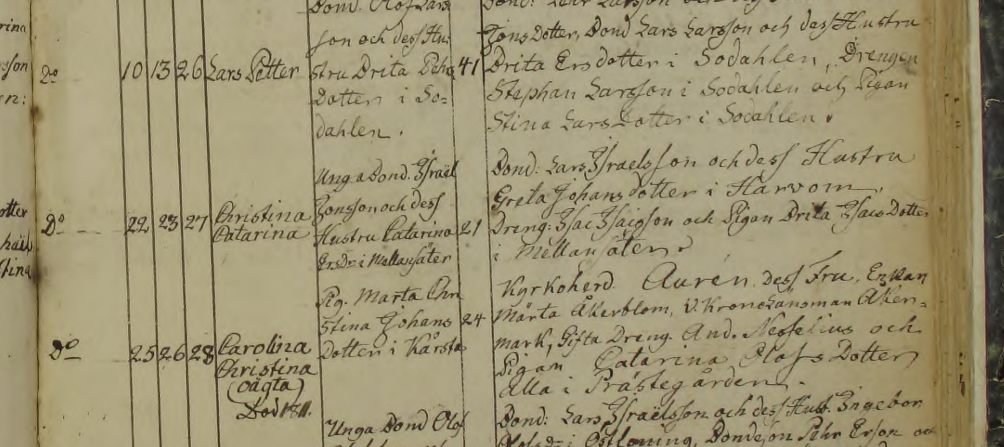 Bond. Olof Lars
son och dess Hu
D:o 10 13 26 Lars Petter
stru Brita Pehrs
Dotter i So=
dahlen.
41
Jons Dotter, Bond Lars Larsson och dess Hustru
Brita Ersdotter i Sodahlen, Drengen
Stephan Larsson i Sodahlen och Pigan
Stina Lars Dotter i Sodahlen.
D:o 22 23 27 Christina
Catarina
Unga Bond. Israel
Jonsson och dess
Hustru Catarina
Ersdr i Mellansäter
21
Bond: Lars Israelsson och dess Hustru
Greta Johansdotter i Harvom,
Dreng: Isac Isacsson och Pigan Brita Isacs Dotter
i Mellansäter.
D:o 25 26 28 Carolina
Christina
(oägta)
Död 1811.
Pig. Marta Chri
stina Johans
Dotter i Kårsta
24
Kyrkoherd. Aurén, dess Fru, Enkan
Märta Åkerblom, V. Kronolänsman Åker=
mark, Gifta Dreng. And. Nesselius och
Pigan Catarina Olofs Dotter
Alla i Prästegården.
Unga Bond Olof
Bond: Lars Israelsson och dess Hust. Ingebor
i Östloning, Bondeson Pehr Erson oc